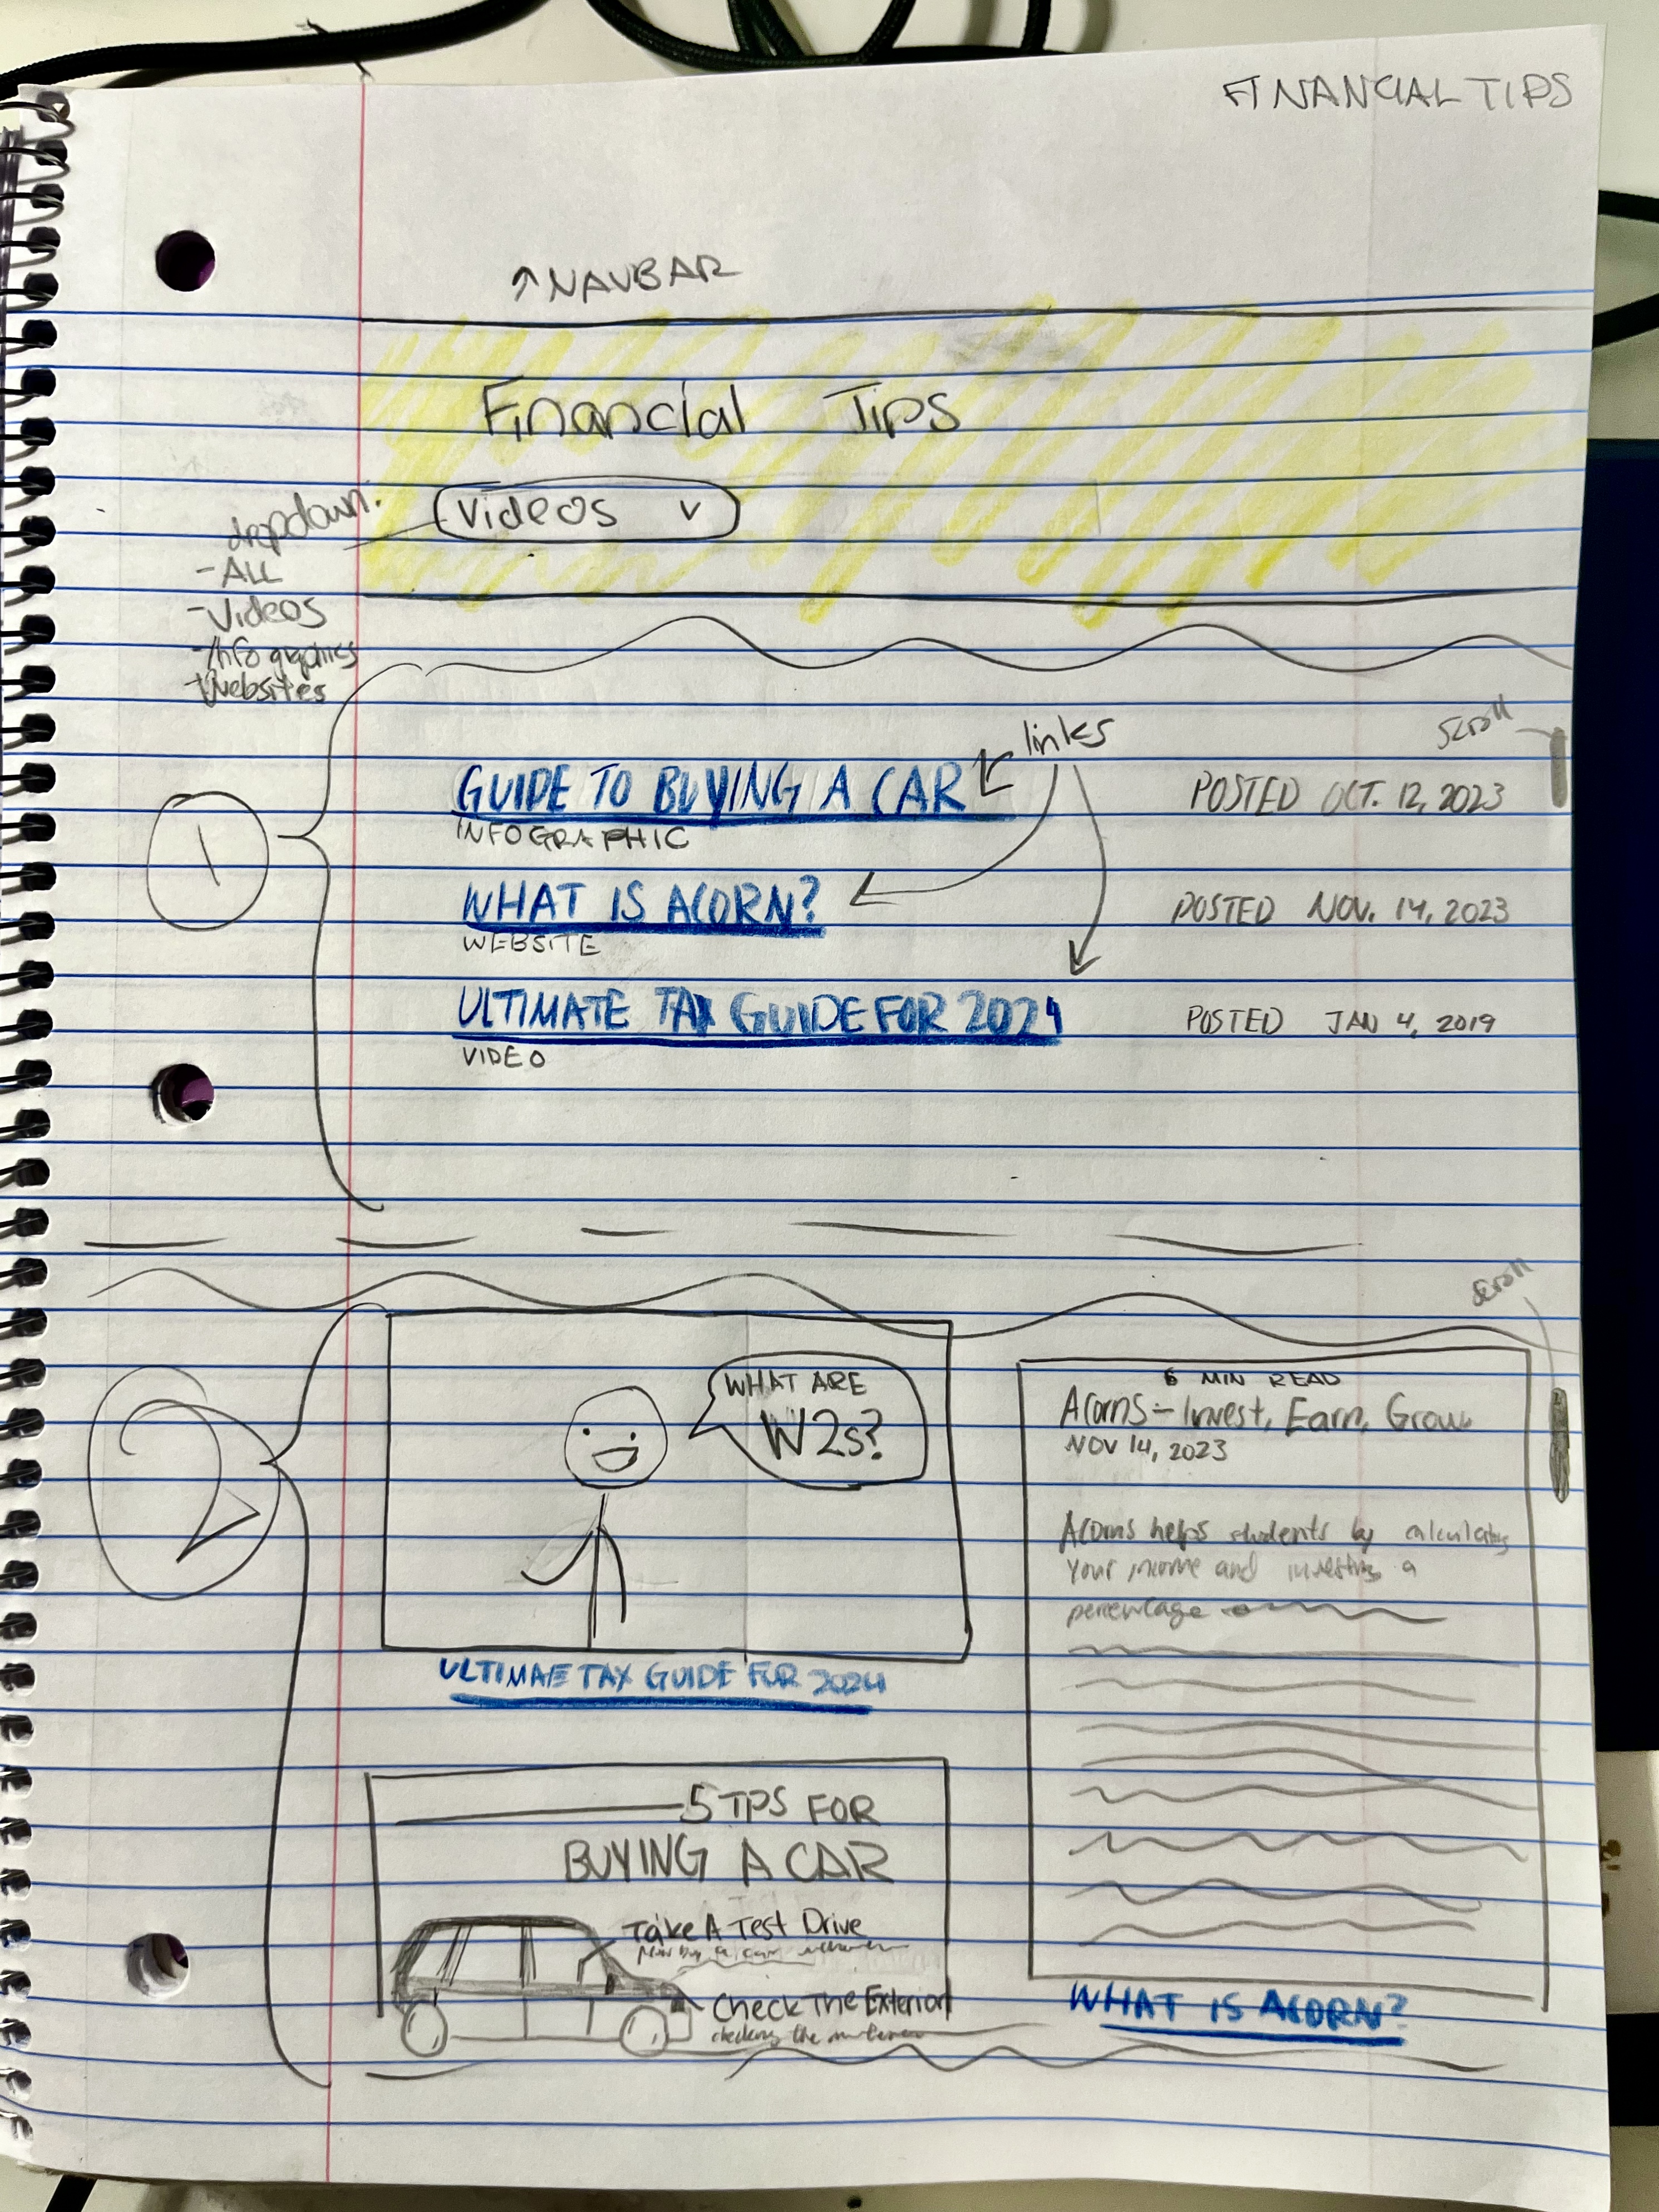 FINANCIAL TIPS
↑ NAVBAR
Financial Tips
Videos v
dropdown:
- ALL
- Videos
- Infographics
- Websites
links
scroll
1
GUIDE TO BUYING A CAR
POSTED OCT. 12, 2023
INFOGRAPHIC
WHAT IS ACORN?
POSTED NOV. 14, 2023
WEBSITE
ULTIMATE TAX GUIDE FOR 2024
POSTED JAN 4, 2019
VIDEO
scroll
2
WHAT ARE
W2s?
ULTIMATE TAX GUIDE FOR 2024
6 MIN READ
Acorns - Invest, Earn, Grow
NOV 14, 2023
Acorns helps students by calculating
your income and investing a
percentage
5 TPS FOR
BUYING A CAR
Take A Test Drive
Check The Exterior
checking the
WHAT IS ACORN?